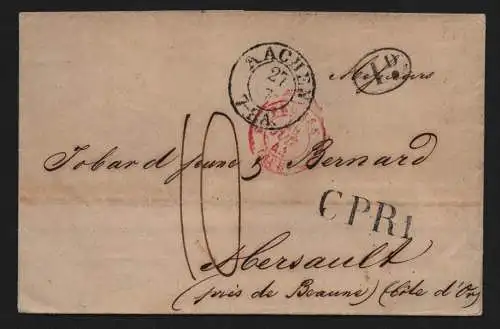 AACHEN
27
Messieurs
Jobard jeune & Bernard
10
CPR1
Mersault
(près de Beaune) (Côte d'Or)